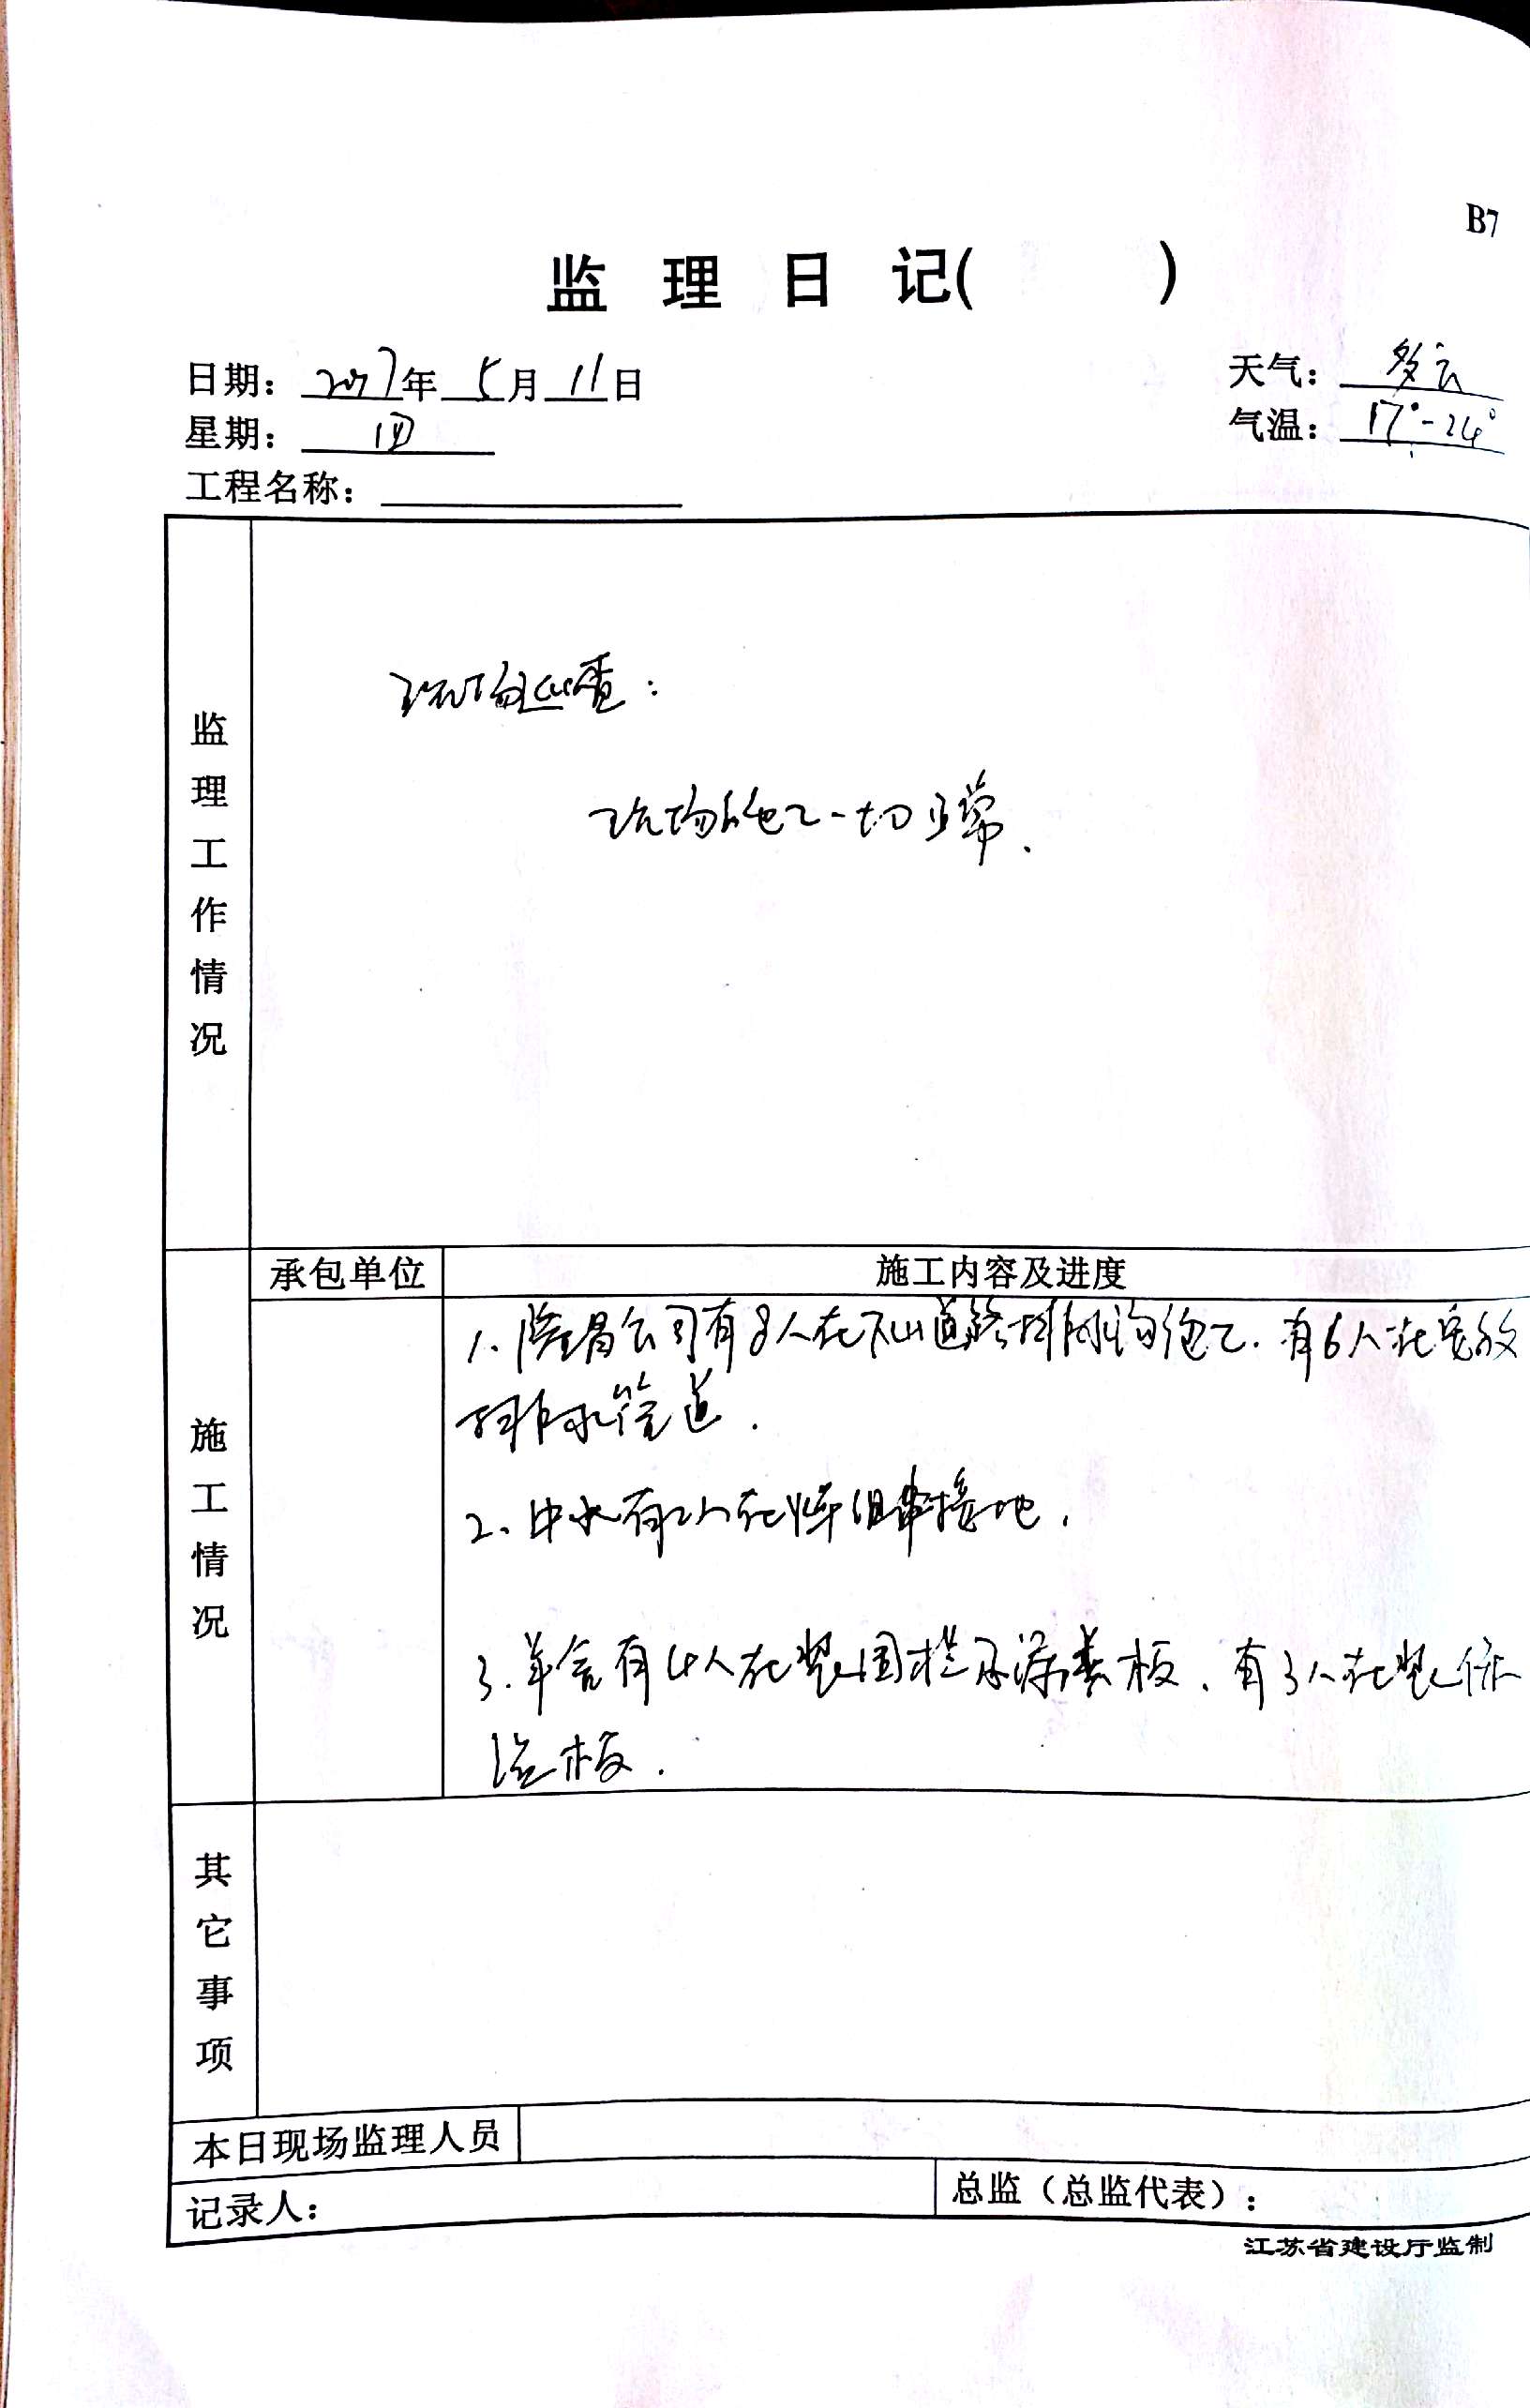 B7
监理日记( )
日期: 2017年 5月 11日 天气: 多云
星期: 四 气温: 17°-24°
工程名称:
监理工作情况
现场巡查:
现场施工一切正常.
承包单位 施工内容及进度
施工情况
1. 隆昌公司有8人在下山道路排水沟施工. 有6人在安放
排水管道.
2. 中水有2人在焊组串接地.
3. 羊舍有4人在装围栏及漏粪板. 有3人在装保
温板.
其它事项
本日现场监理人员
记录人: 总监(总监代表):
江苏省建设厅监制